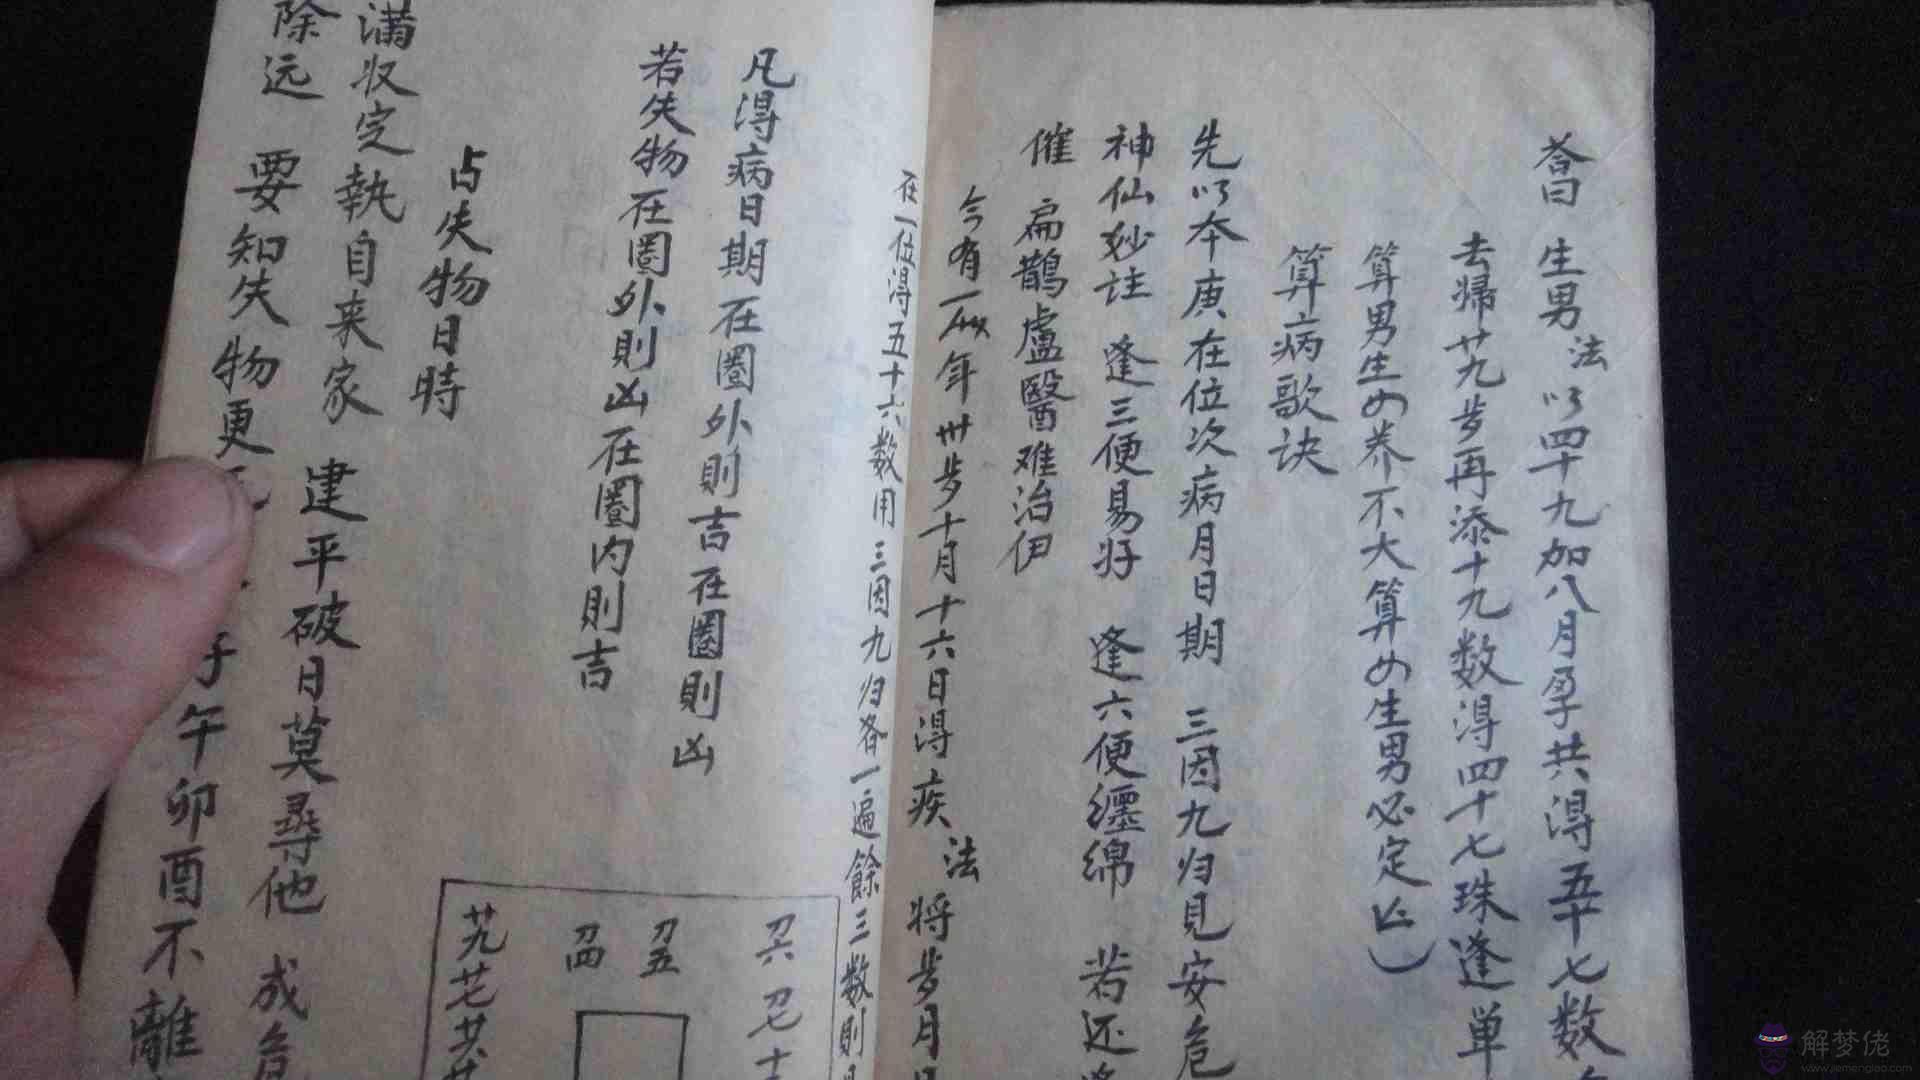 荅曰 生男法 以四十九加八月孕共得五十七数
去歸廿九步再添十九数得四十七珠逢单
算男生女养不大算女生男必定
算病歌诀
先以本庚在位次病月日期 三因九归見安危
神仙妙註 逢三便易好 逢六便纏綿 若还逢
催 扁鵲盧醫难治伊
今有一人年卅步十月十六日得疾 法 将步月日
在一位得五十六数用三因九归各一遍餘三数則
凡得病日期在圈外則吉在圈則凶
若失物在圈外則凶在圈内則吉
占失物日時
满收定執自来家 建平破日莫尋他 成危
除远 要知失物更 子午卯酉不離